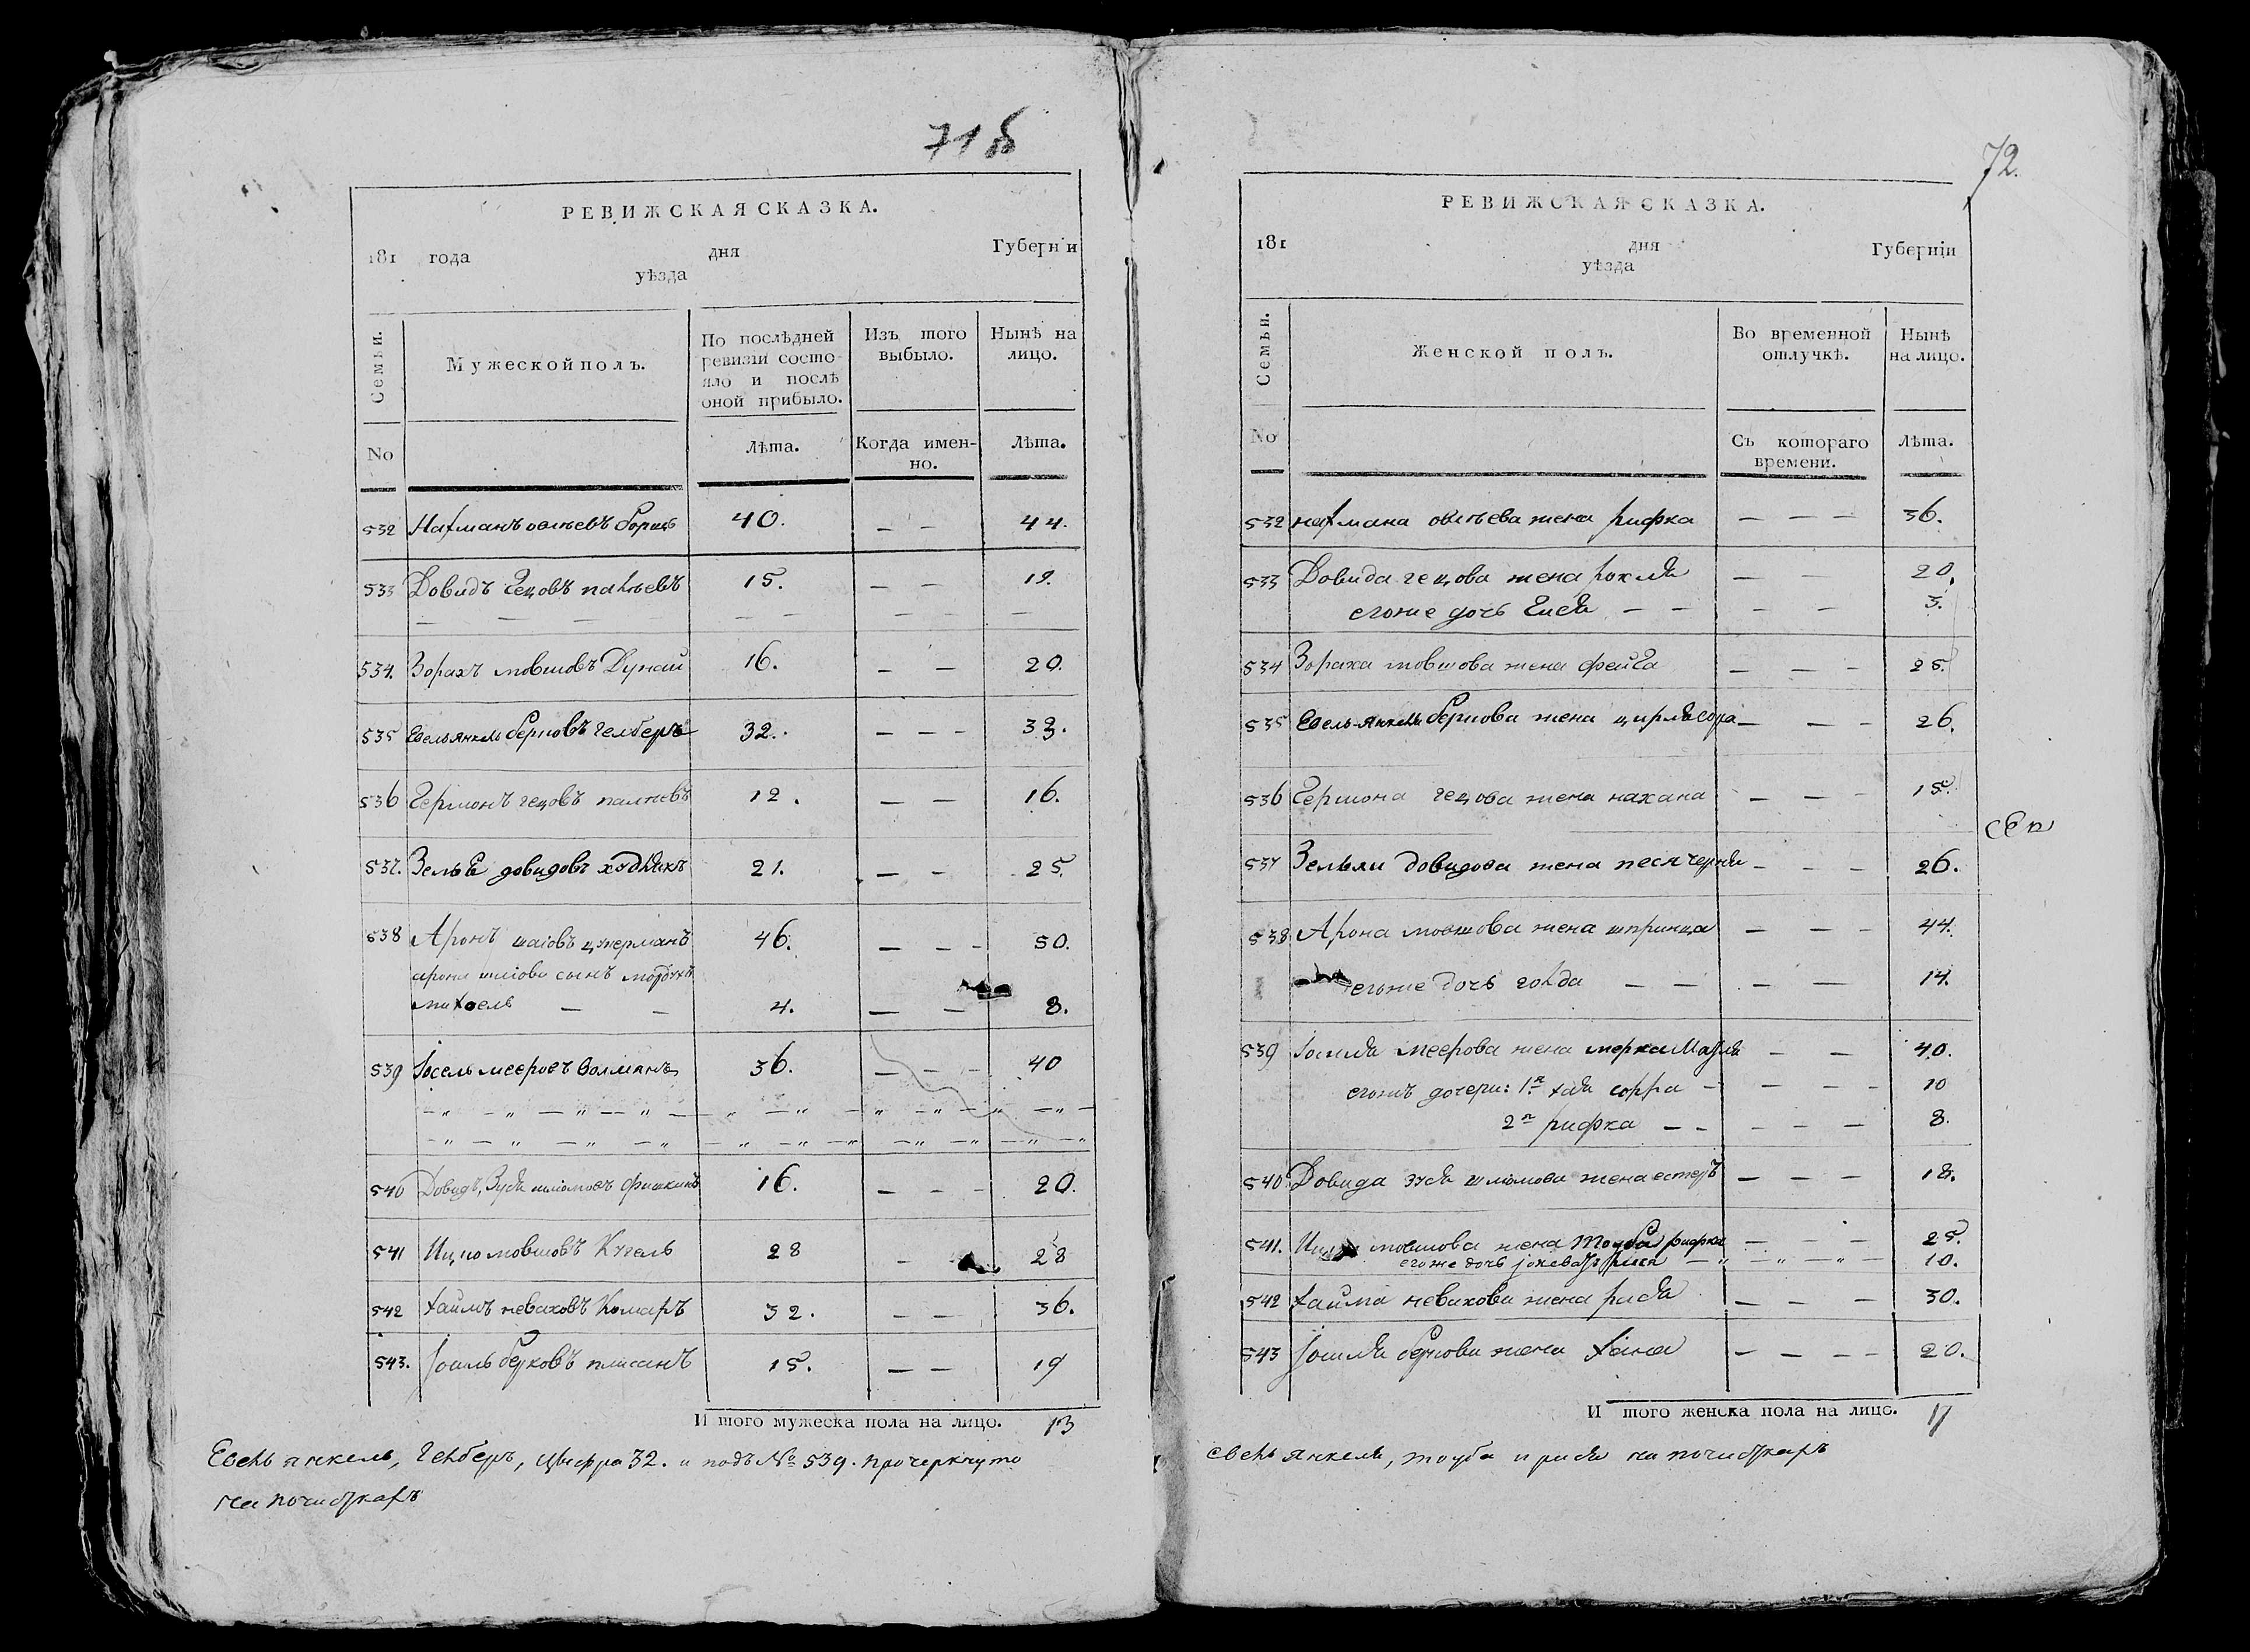 71 б
РЕВИЖСКАЯ СКАЗКА.
181 года дня Губерніи
уѣзда
Семьи.
Мужеской полъ.
По послѣдней ревизіи состояло и послѣ оной прибыло.
Изъ того выбыло.
Нынѣ на лицо.
No
Лѣта.
Когда именно.
Лѣта.
532 Нахманъ 40. — — 44.
533 Довидъ Гецовъ 15. — — 19.
534. Зорахъ мовшовъ Дунай 16. — — 20.
535 Евель янкель берковъ гелберъ 32. — — — 33.
536 Гершонъ гецовъ 12. — — 16.
537. Зельва довидовъ худнякъ 21. — — 25.
538 Аронъ шаіовъ цукерманъ 46. — — — 50.
арона шаіова сынъ
михоель — — 4. — — 8.
539 Іосель мееровъ 36. — — — 40
540 Довидъ, Зуся шліомовъ фишкинъ 16. — — — 20.
541 Ицко мовшовъ Кугель 28 — — 28
542 хаимъ неваховъ Комаръ 32. — — 36.
543. Іоиль берковъ 15. — — 19
И того мужеска пола на лицо. 13
Евель янкель, Гельберъ, цыфра 32. и подъ № 539. прочеркнуто
на почисткахъ
72.
РЕВИЖСКАЯ СКАЗКА.
181 дня Губерніи
уѣзда
Семьи.
Женской полъ.
Во временной отлучкѣ.
Нынѣ на лицо.
No
Съ котораго времени.
Лѣта.
532 нахмана жена рифка — — — 36.
533 Довида гецова жена рохля — — 20.
егоже дочь Гися — — — — 3.
534 Зораха мовшова жена фейга — — — 25.
535 Евель-янкеля беркова жена цирля сора — — — 26.
536 Гершона гецова жена нахана — — — 15.
537 Зельви довидова жена песя черня — — — 26.
538 Арона мовшова жена шпринца — — — 44.
егоже дочь голда — — — — 14.
539 Іошля меерова жена мерка — — 40.
егожъ дочери: 1я хая сорра — — — — 10
2я рифка — — — — — 8.
540 Довида зуся шліомова жена естеръ — — — 18.
541. мовшова жена тоуба рифка — — — 25.
егоже дочь 10.
542 хаима невахова жена рися — — — 30.
543 Іоиля беркова жена хана — — — — 20.
И того женска пола на лицо. 17
евель янкеля, тоуба и рися на почисткахъ